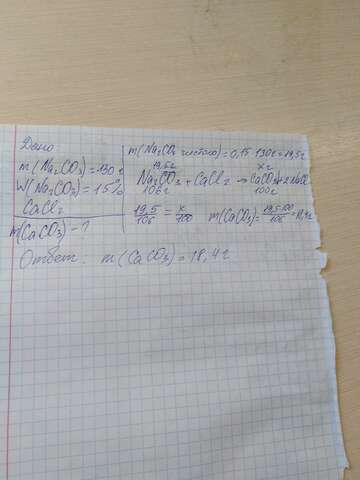 Дано
m(Na₂CO₃)=130г
W(Na₂CO₃)=15%
CaCl₂
m(CaCO₃)-?
m(Na₂CO₃ чистого)=0,15·130г=19,5г
19,5г xг
Na₂CO₃+CaCl₂→CaCO₃+2NaCl
106г 100г
19,5/106=x/100 m(CaCO₃)=19,5·100/106=18,4г
Ответ: m(CaCO₃)=18,4г